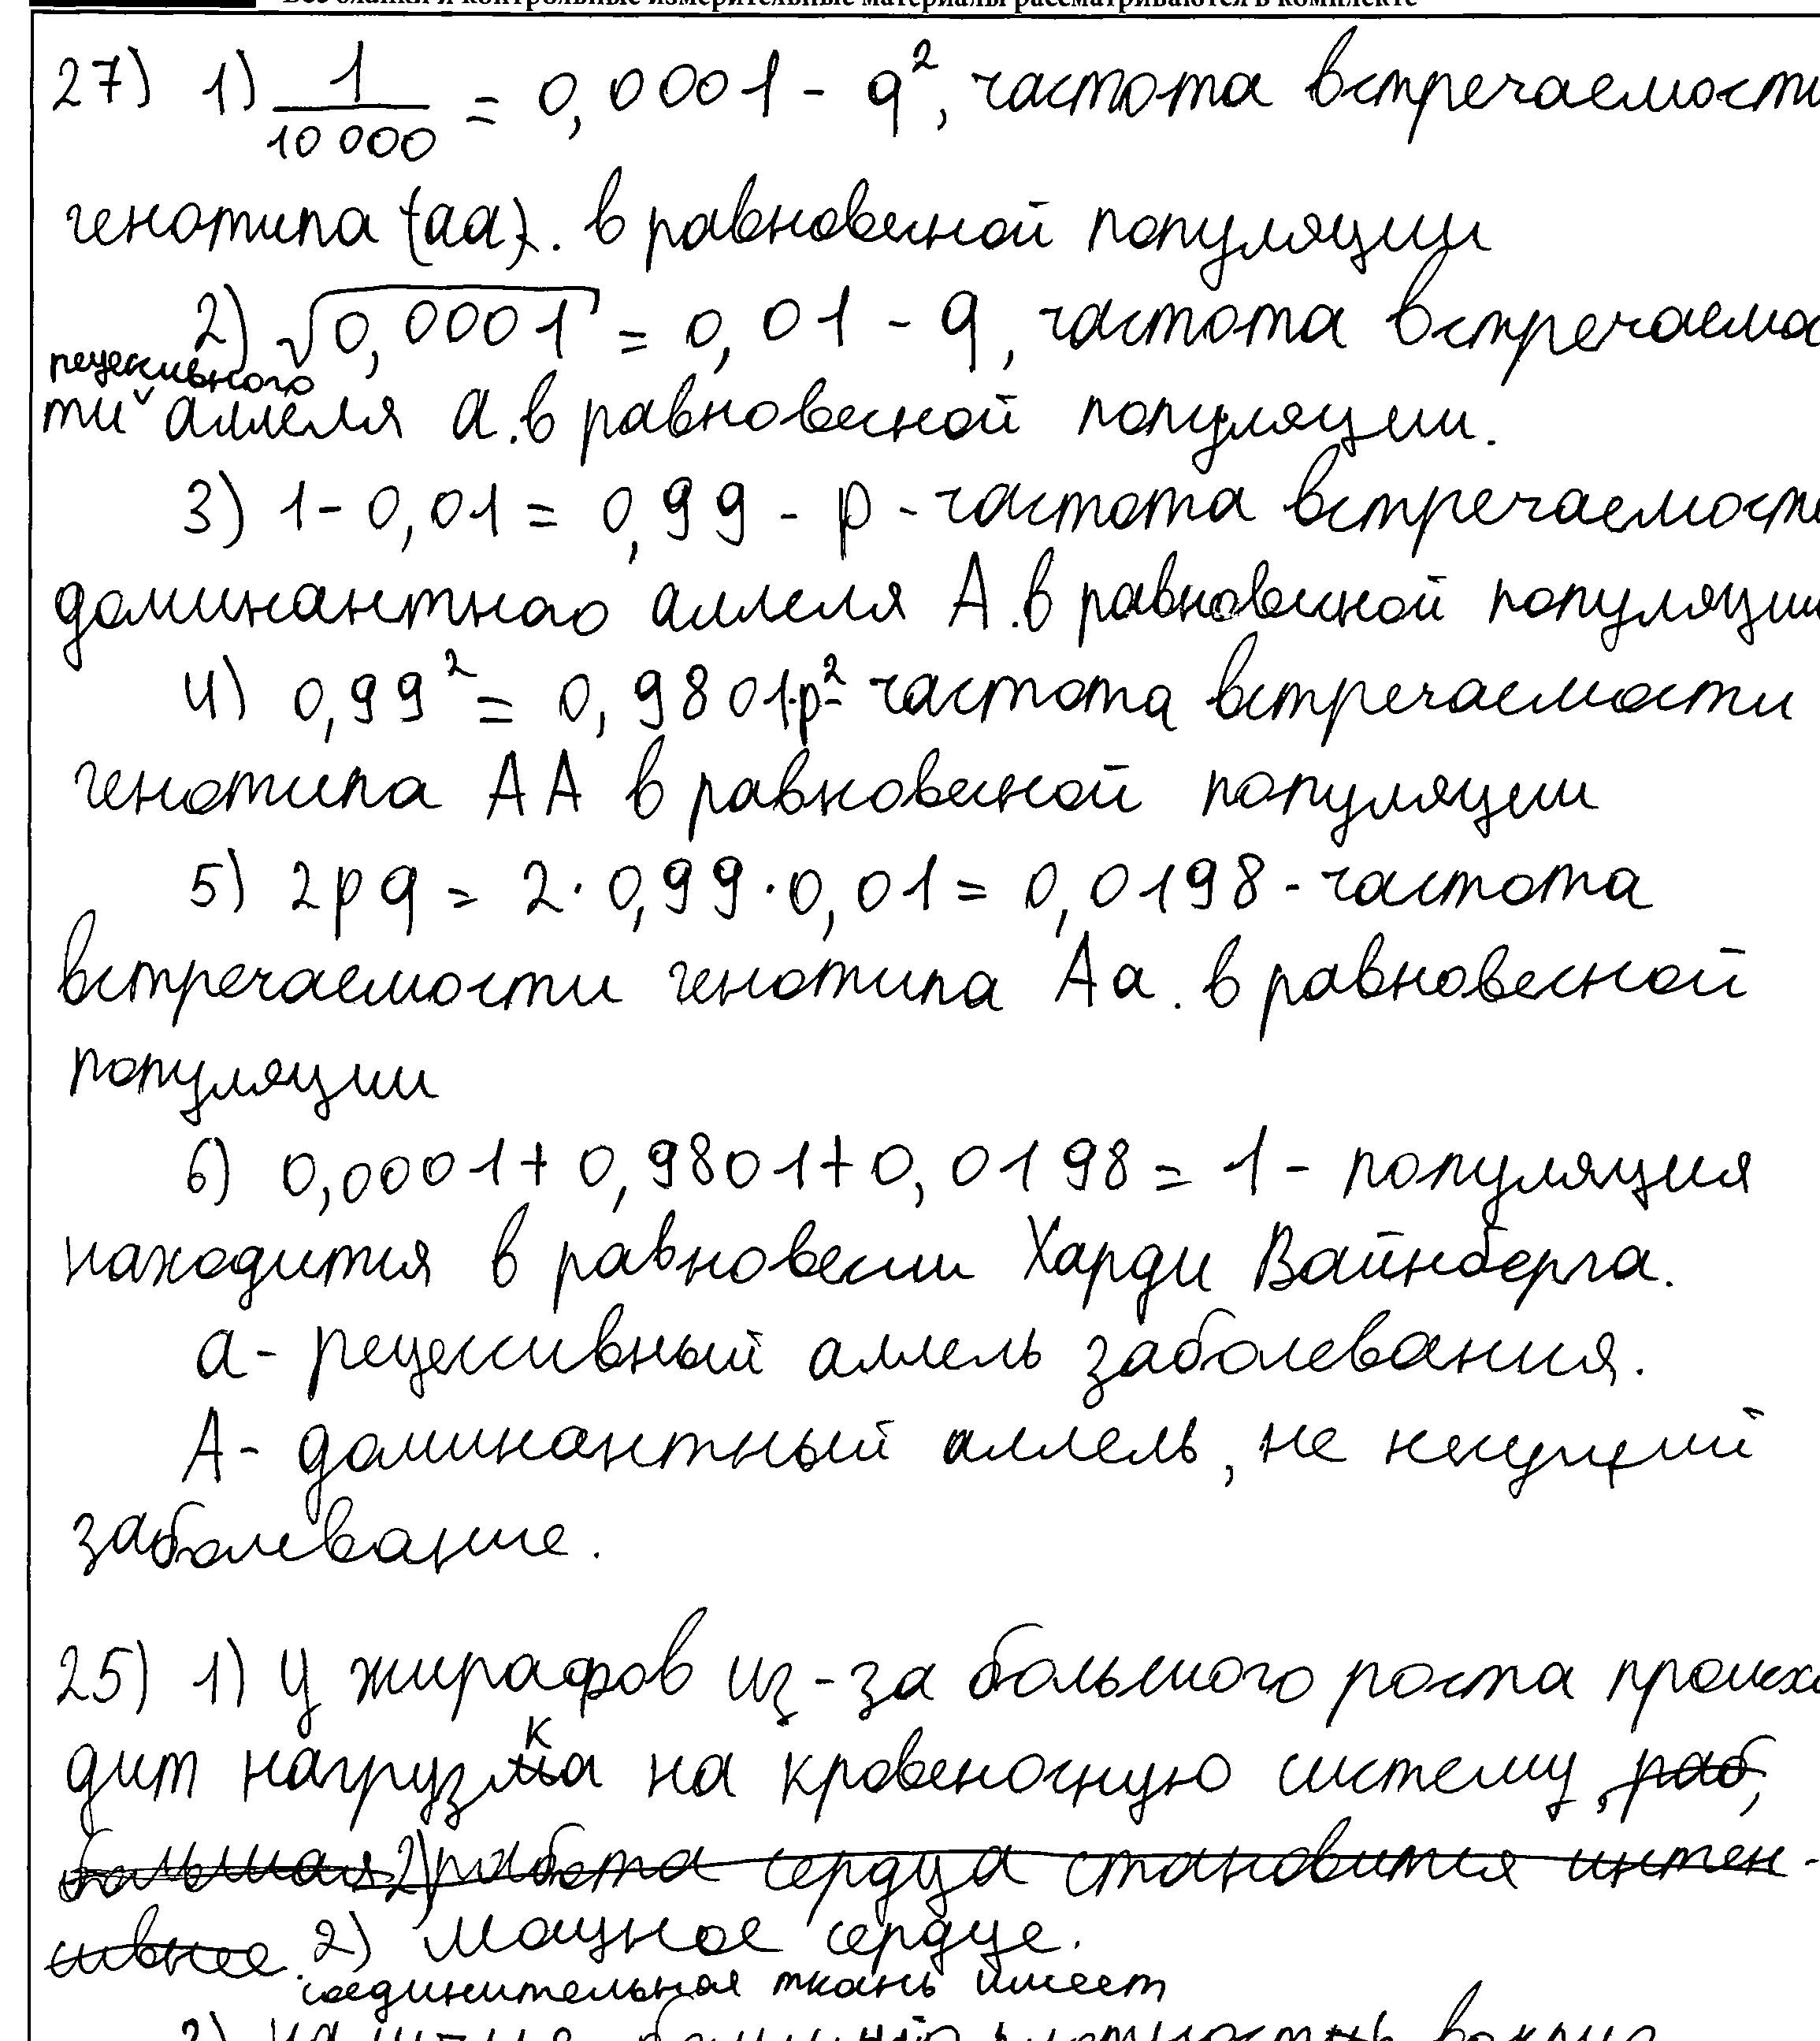 Все бланки и контрольные измерительные материалы рассматриваются в комплекте
27) 1) 1/10 000 = 0,0001 - q², частота встречаемости
генотипа (аа). в равновесной популяции
2) √0,0001 = 0,01 - q, частота встречаемос
рецессивного
ти ˅ аллеля а. в равновесной популяции.
3) 1 - 0,01 = 0,99 - р - частота встречаемости
доминантного аллеля А. в равновесной популяции
4) 0,99² = 0,9801 - р² - частота встречаемости
генотипа АА в равновесной популяции
5) 2pq = 2·0,99·0,01 = 0,0198 - частота
встречаемости генотипа Аа. в равновесной
популяции
6) 0,0001 + 0,9801 + 0,0198 = 1 - популяция
находится в равновесии Харди Вайнберга.
а - рецессивный аллель заболевания.
А - доминантный аллель, не несущий
заболевание.
25) 1) У жирафов из-за большого роста происхо
дит нагрузка на кровеносную систему, раб,
большая 2) работа сердца становится интен-
сивнее. 2) Мощное сердце.
соединительная ткань имеет
3) вокруг